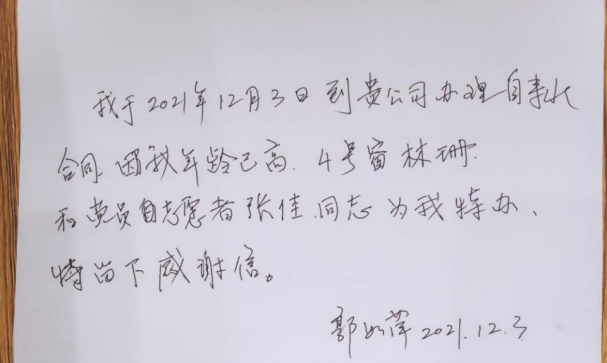 我于2021年12月3日到贵公司办理自来水
合同,因我年龄已高.4号窗林珊.
和党员自志愿者张佳.同志为我特办、
特留下感谢信。
郭 2021.12.3